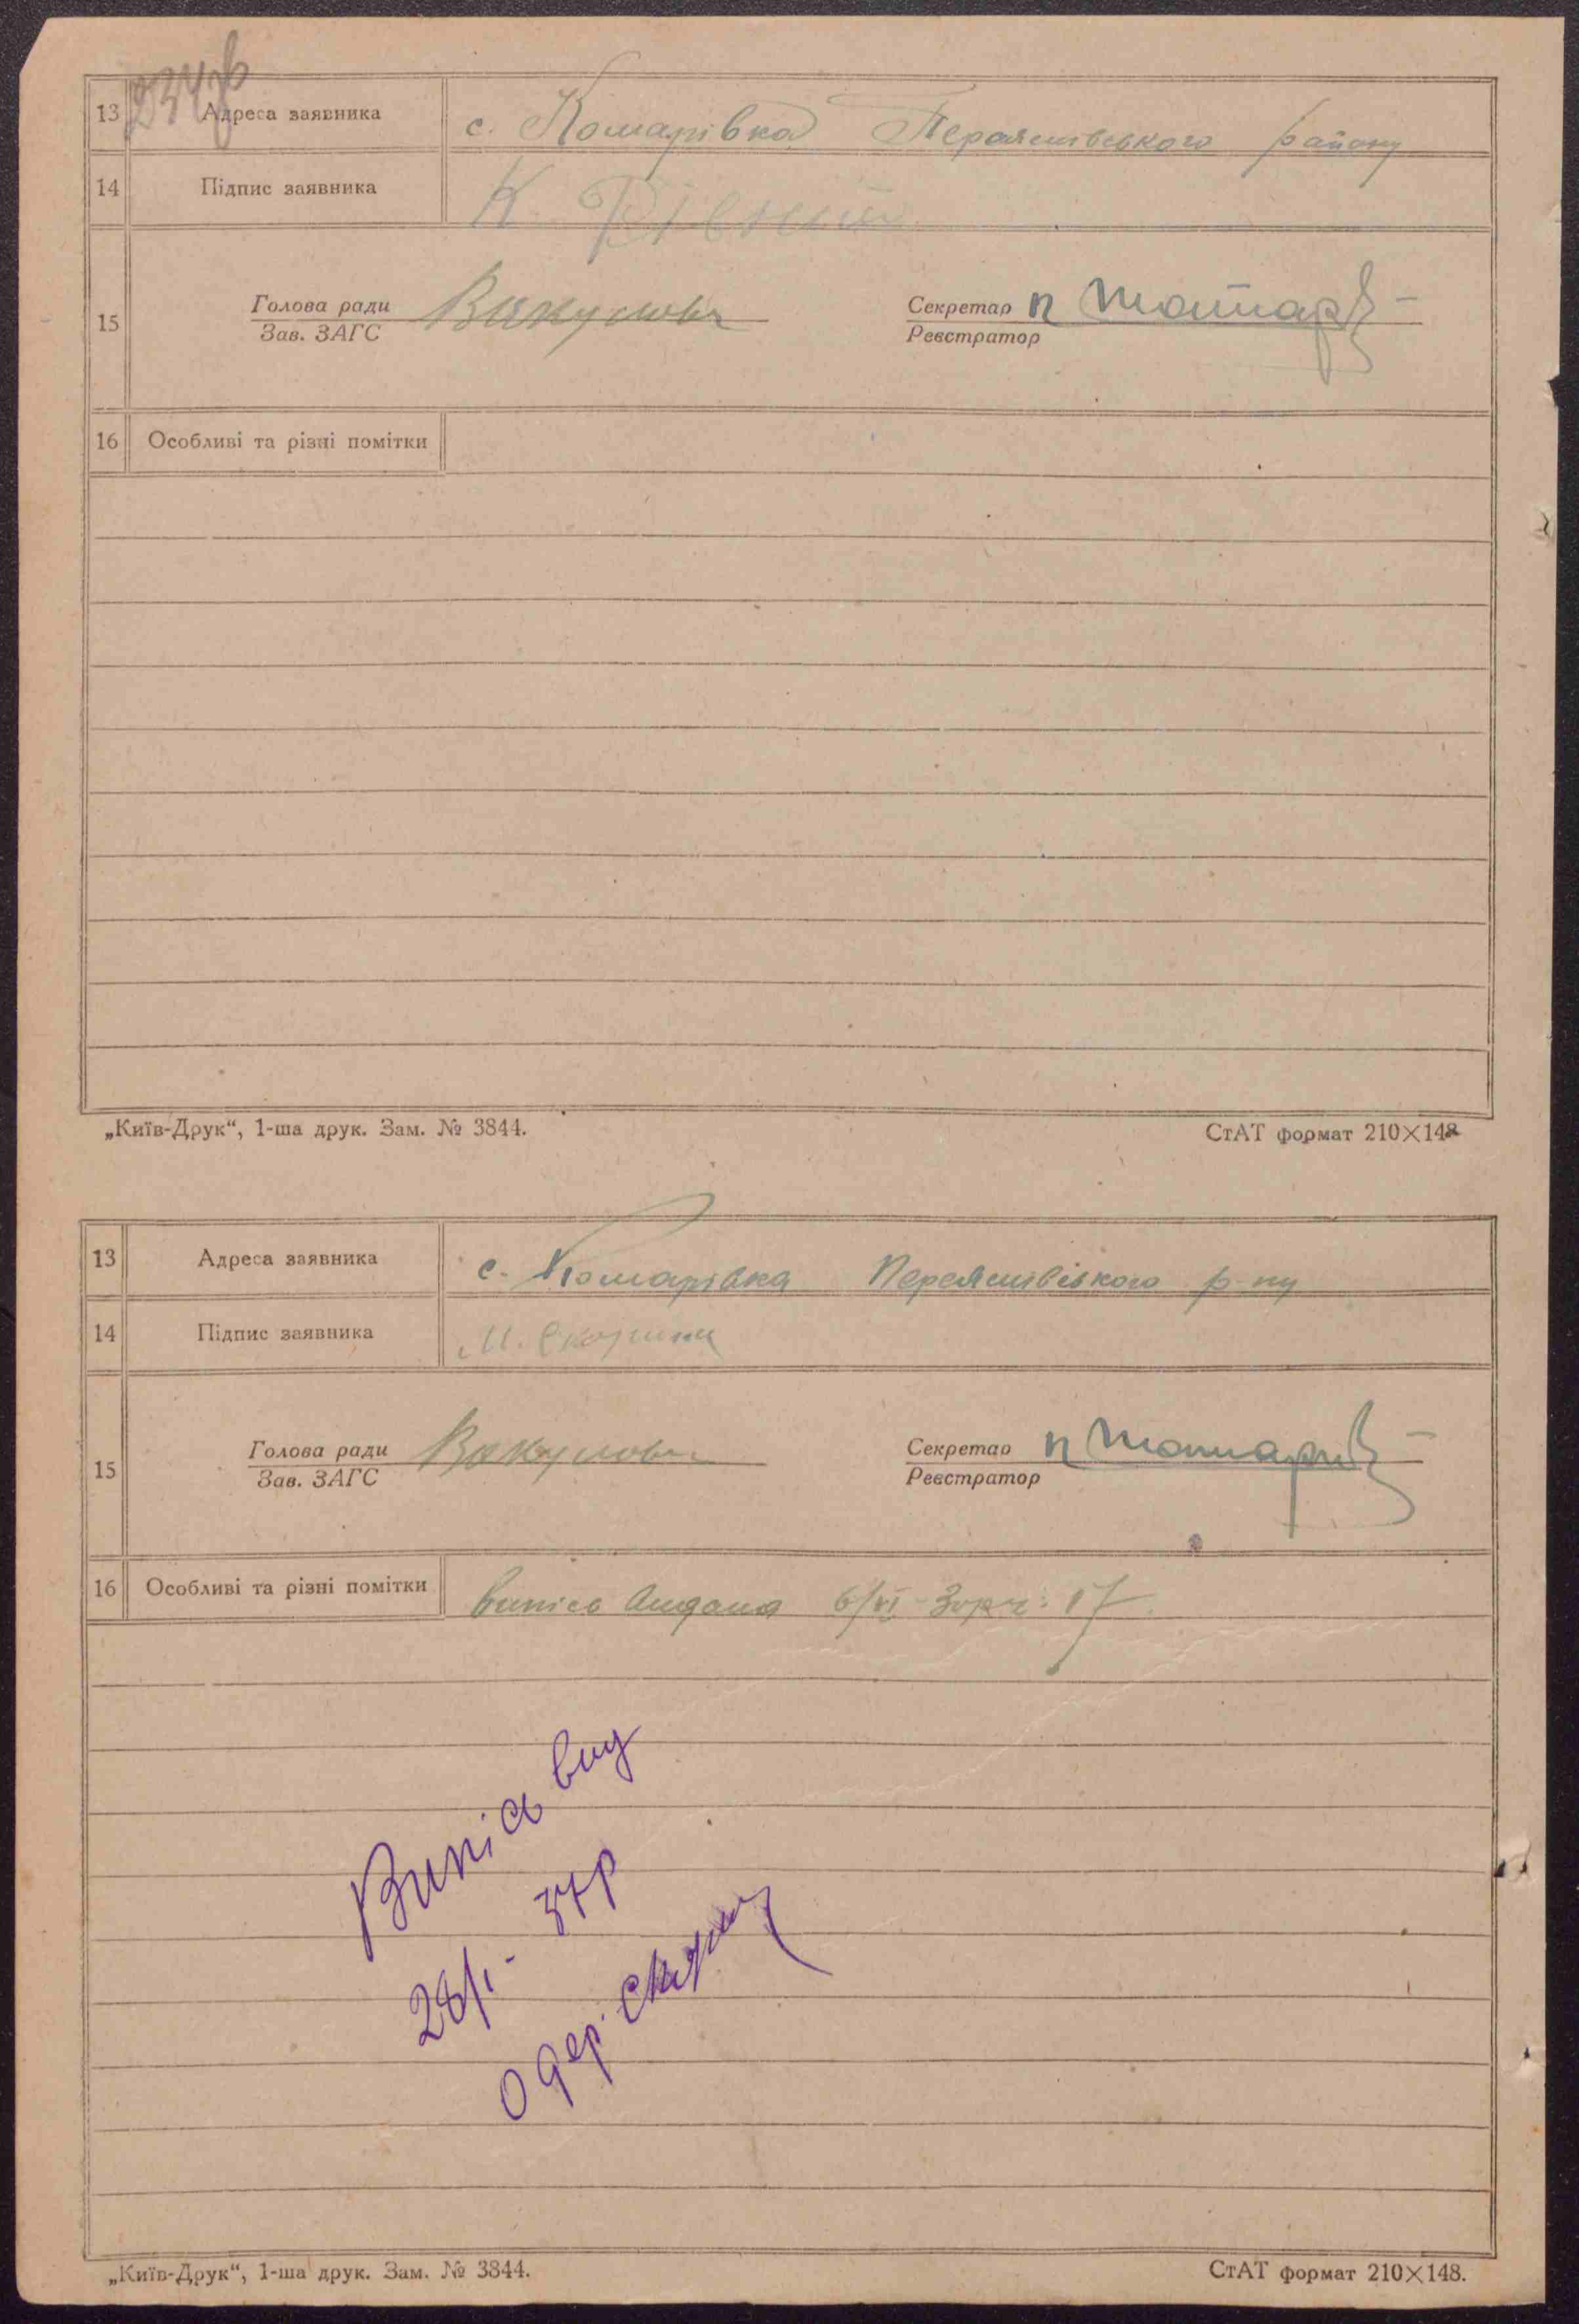 234зв
13 Адреса заявника с. Комарівка Переяславського району
14 Підпис заявника К. Рівний
15 Голова ради Вакулович Секретар П
Зав. ЗАГС Реєстратор
16 Особливі та різні помітки
„Київ-Друк“, 1-ша друк. Зам. № 3844. СтАТ формат 210×148
13 Адреса заявника с. Комарівка р-ну
14 Підпис заявника М.
15 Голова ради Секретар П
Зав. ЗАГС Реєстратор
16 Особливі та різні помітки Випісь видана 6/VI - 17
Випісь вид
28/I - 37р
одер.
„Київ-Друк“, 1-ша друк. Зам. № 3844. СтАТ формат 210×148.